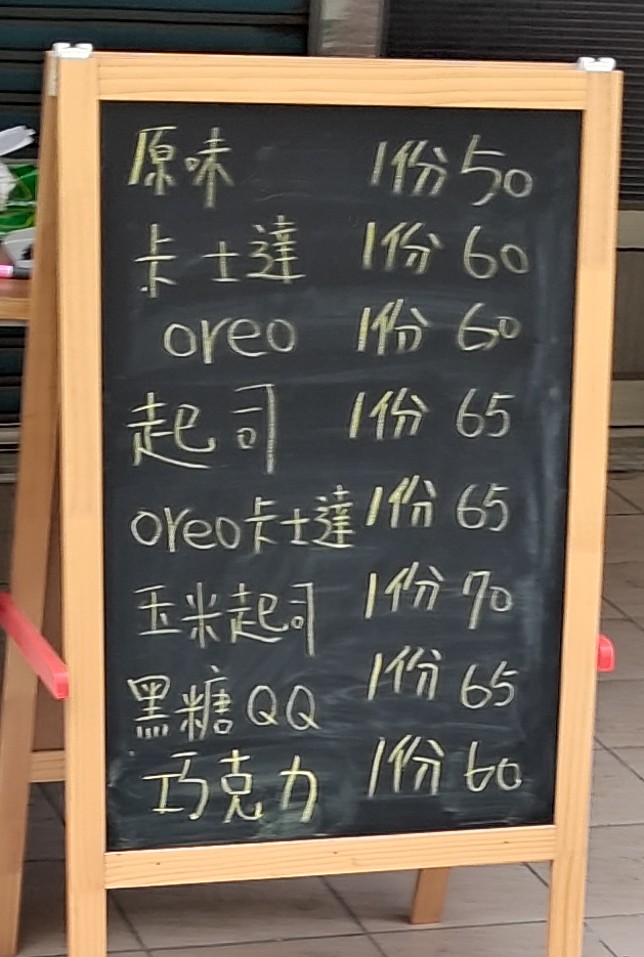 原味 1份 50
卡士達 1份 60
oreo 1份 60
起司 1份 65
oreo卡士達 1份 65
玉米起司 1份 70
黑糖QQ 1份 65
巧克力 1份 60